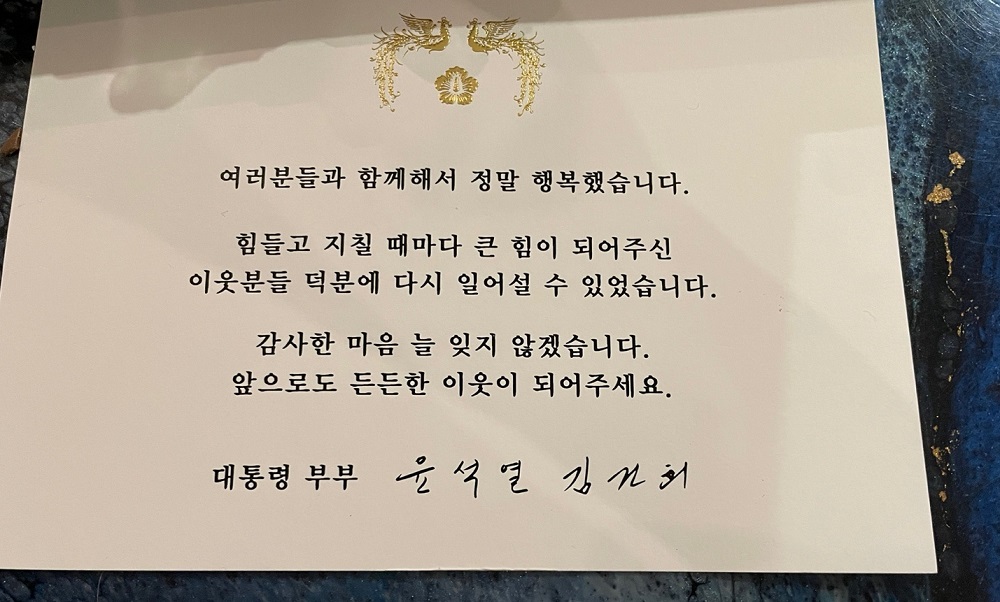 여러분들과 함께해서 정말 행복했습니다.
힘들고 지칠 때마다 큰 힘이 되어주신
이웃분들 덕분에 다시 일어설 수 있었습니다.
감사한 마음 늘 잊지 않겠습니다.
앞으로도 든든한 이웃이 되어주세요.
대통령 부부 윤석열 김건희